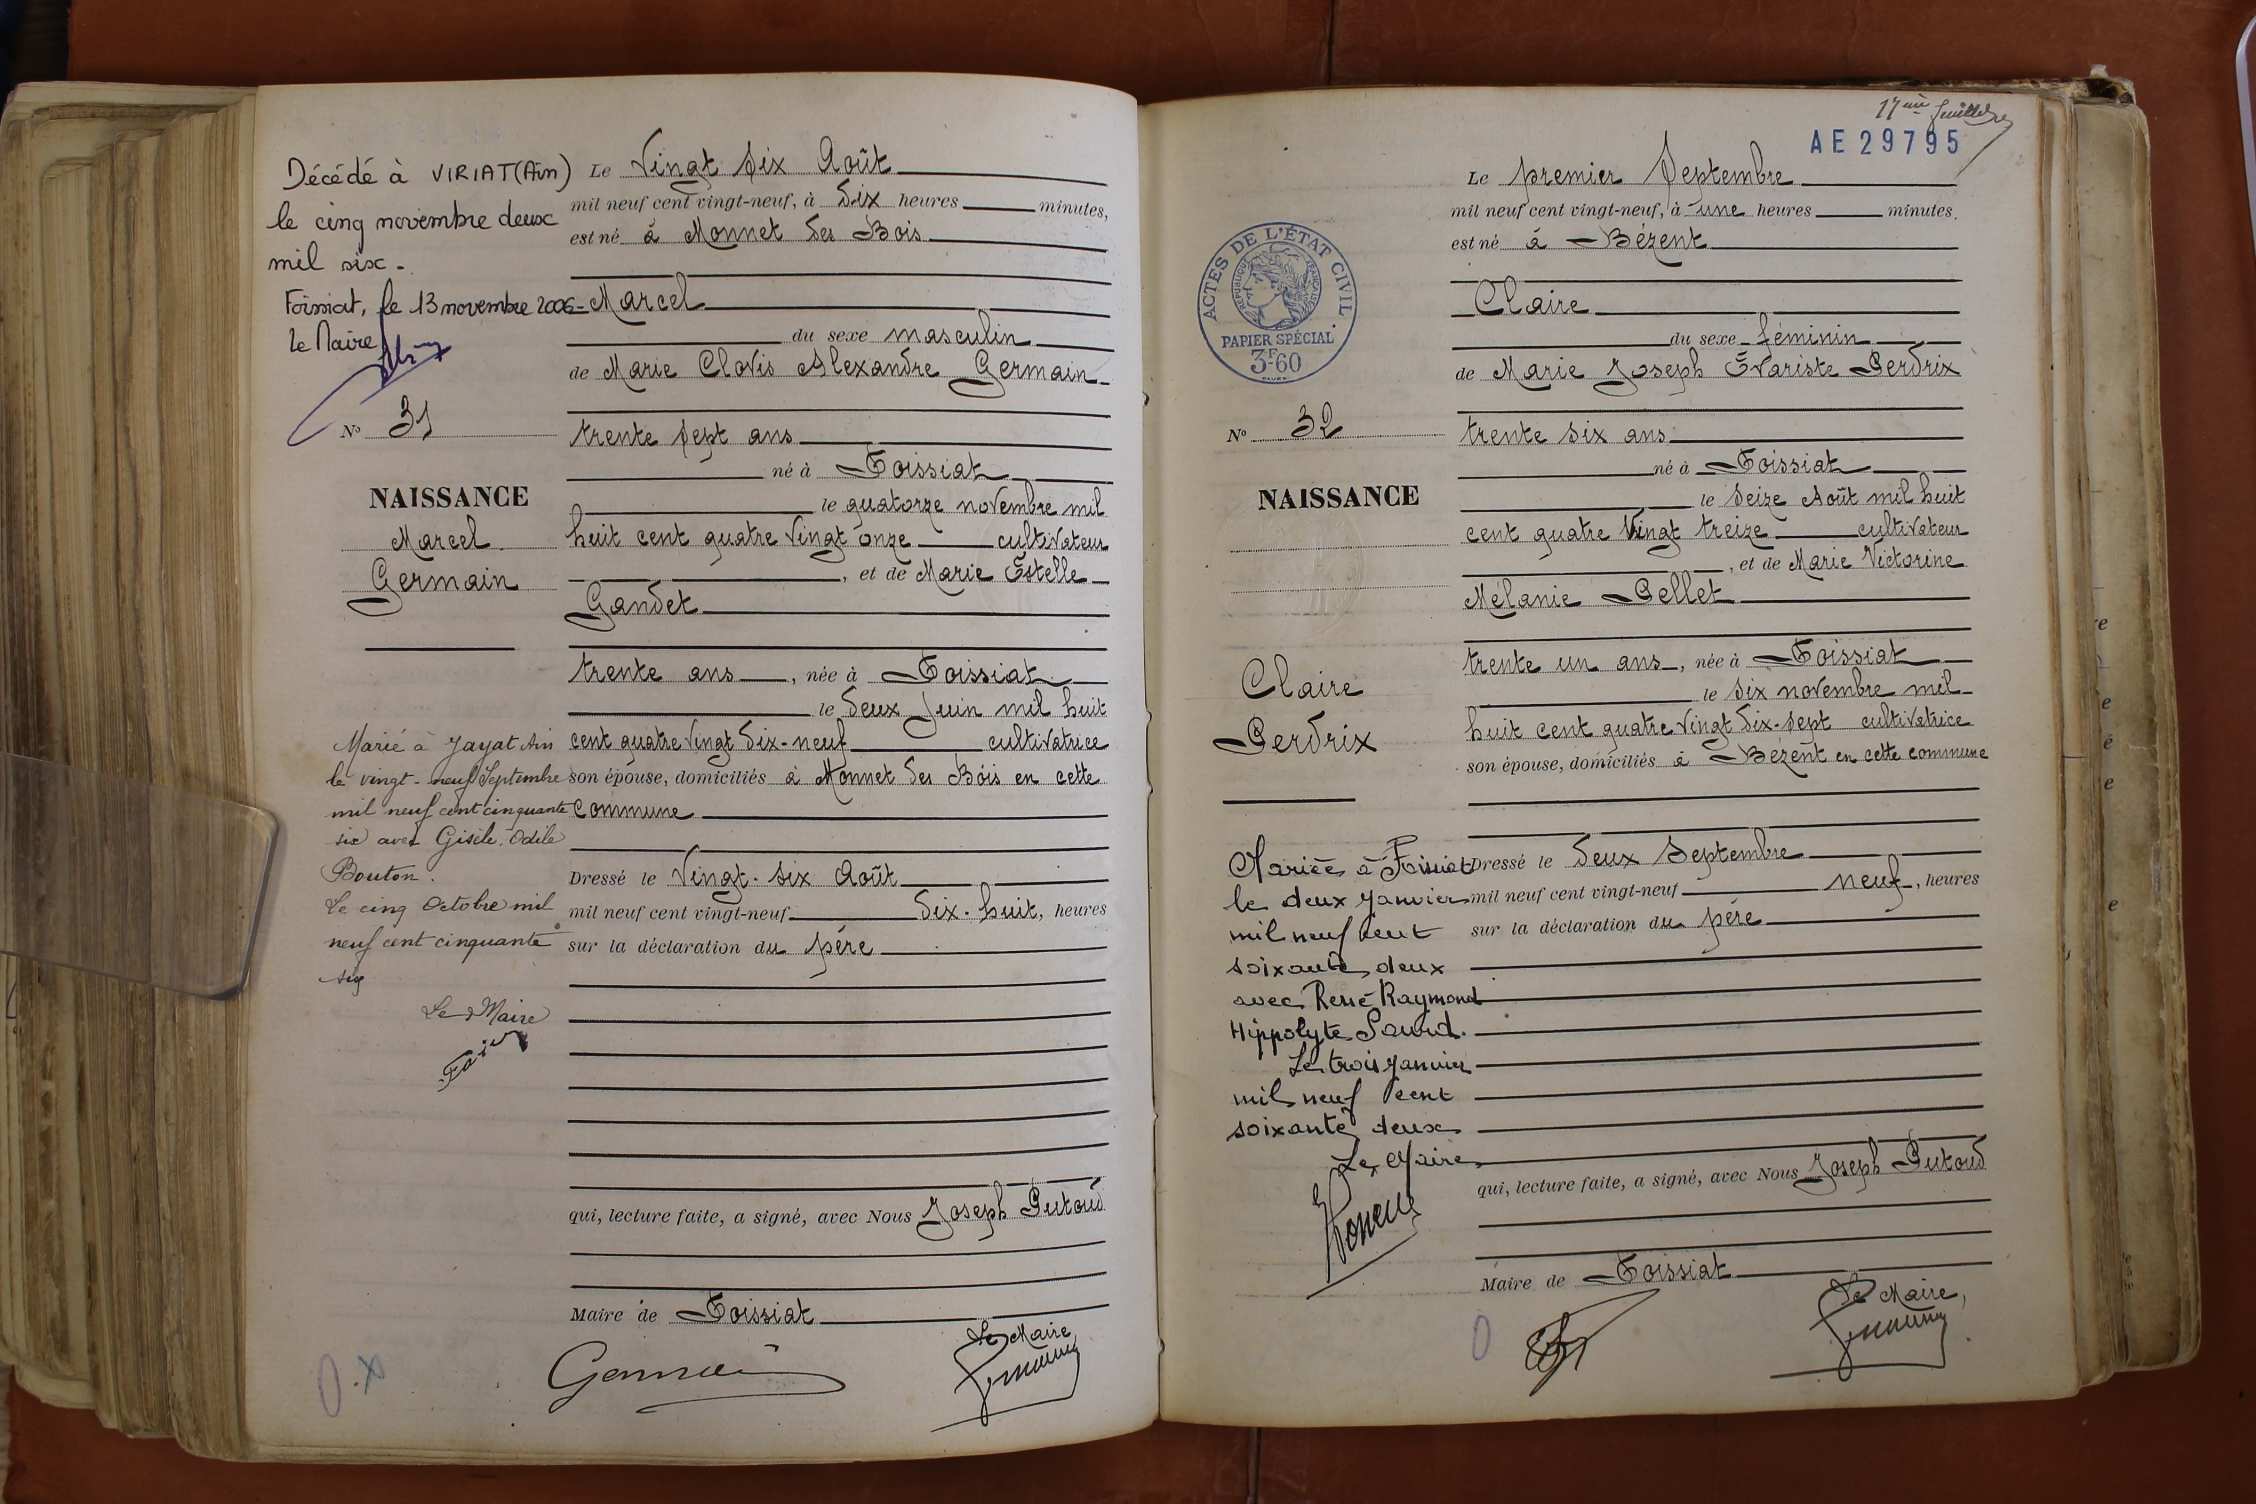 Décédé à VIRIAT (Ain)
le cinq novembre deux
mil six.
Foissiat, le 13 novembre 2006
le Maire
N° 31
NAISSANCE
Marcel
Germain
Marié à Jayat Ain
le vingt-neuf Septembre
mil neuf cent cinquante
six avec Gisèle Odile
Bouton.
Le cinq Octobre mil
neuf cent cinquante
six
Le Maire
Le Vingt six Août
mil neuf cent vingt-neuf, à dix heures minutes,
est né à Monnet des Bois
Marcel
du sexe masculin
de Marie Clovis Alexandre Germain
trente sept ans
né à Foissiat
le quatorze novembre mil
huit cent quatre vingt onze cultivateur
, et de Marie Estelle
Gandet
trente ans , née à Foissiat
le deux Juin mil huit
cent quatre vingt dix-neuf cultivatrice
son épouse, domiciliés à Monnet des Bois en cette
commune
Dressé le Vingt-six Août
mil neuf cent vingt-neuf dix-huit, heures
sur la déclaration du père
qui, lecture faite, a signé, avec Nous Joseph Putoud
Maire de Foissiat
Le Maire
Germain
17ème feuillet
AE29795
ACTES DE L'ÉTAT CIVIL
RÉPUBLIQUE FRANÇAISE
PAPIER SPÉCIAL
3F60
N° 32
NAISSANCE
Claire
Perdrix
Mariée à Foissiat
le deux janvier
mil neuf cent
soixante deux
avec René Raymond
Hippolyte
Le trois janvier
mil neuf cent
soixante deux
Le Maire
Le premier Septembre
mil neuf cent vingt-neuf, à une heures minutes,
est né à Bézent
Claire
du sexe féminin
de Marie Joseph Évariste Perdrix
trente six ans
né à Foissiat
le seize Août mil huit
cent quatre vingt treize cultivateur
, et de Marie Victorine
Mélanie Pellet
trente un ans , née à Foissiat
le six novembre mil
huit cent quatre vingt dix-sept cultivatrice
son épouse, domiciliés à Bézent en cette commune
Dressé le deux Septembre
mil neuf cent vingt-neuf neuf, heures
sur la déclaration du père
qui, lecture faite, a signé, avec Nous Joseph Putoud
Maire de Foissiat
Le Maire,